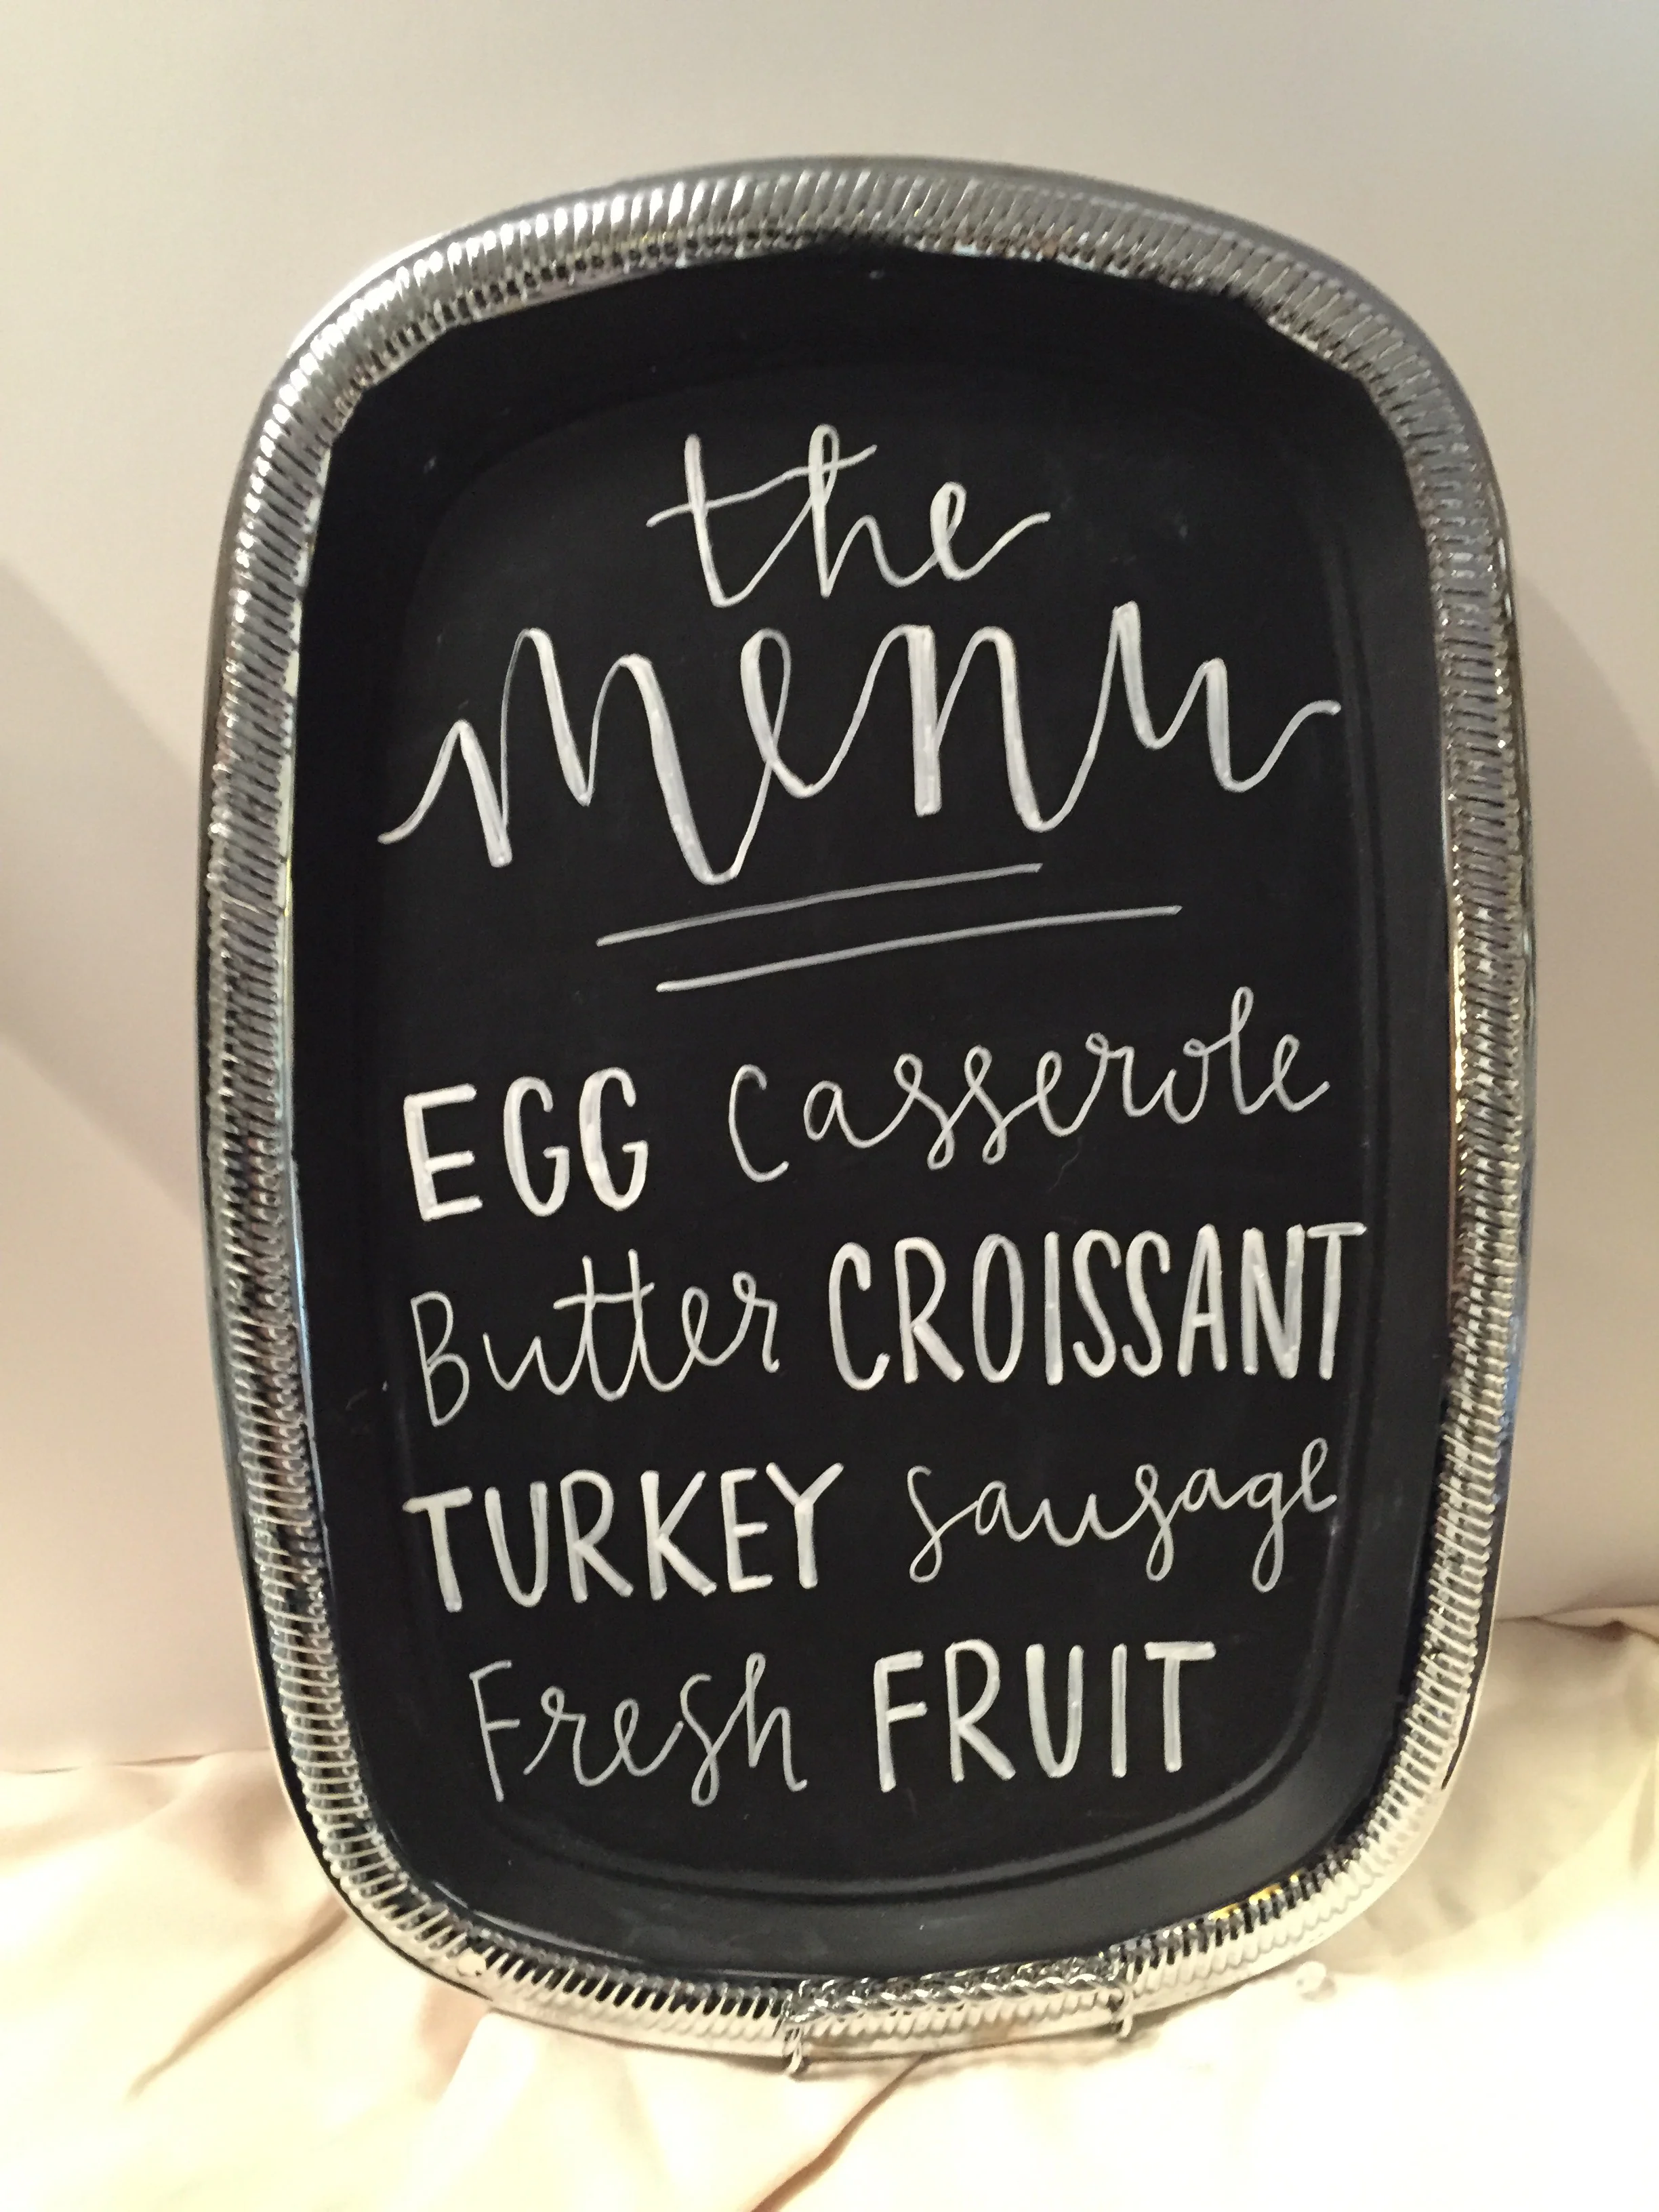 the
menu
EGG Casserole
Butter CROISSANT
TURKEY sausage
Fresh FRUIT